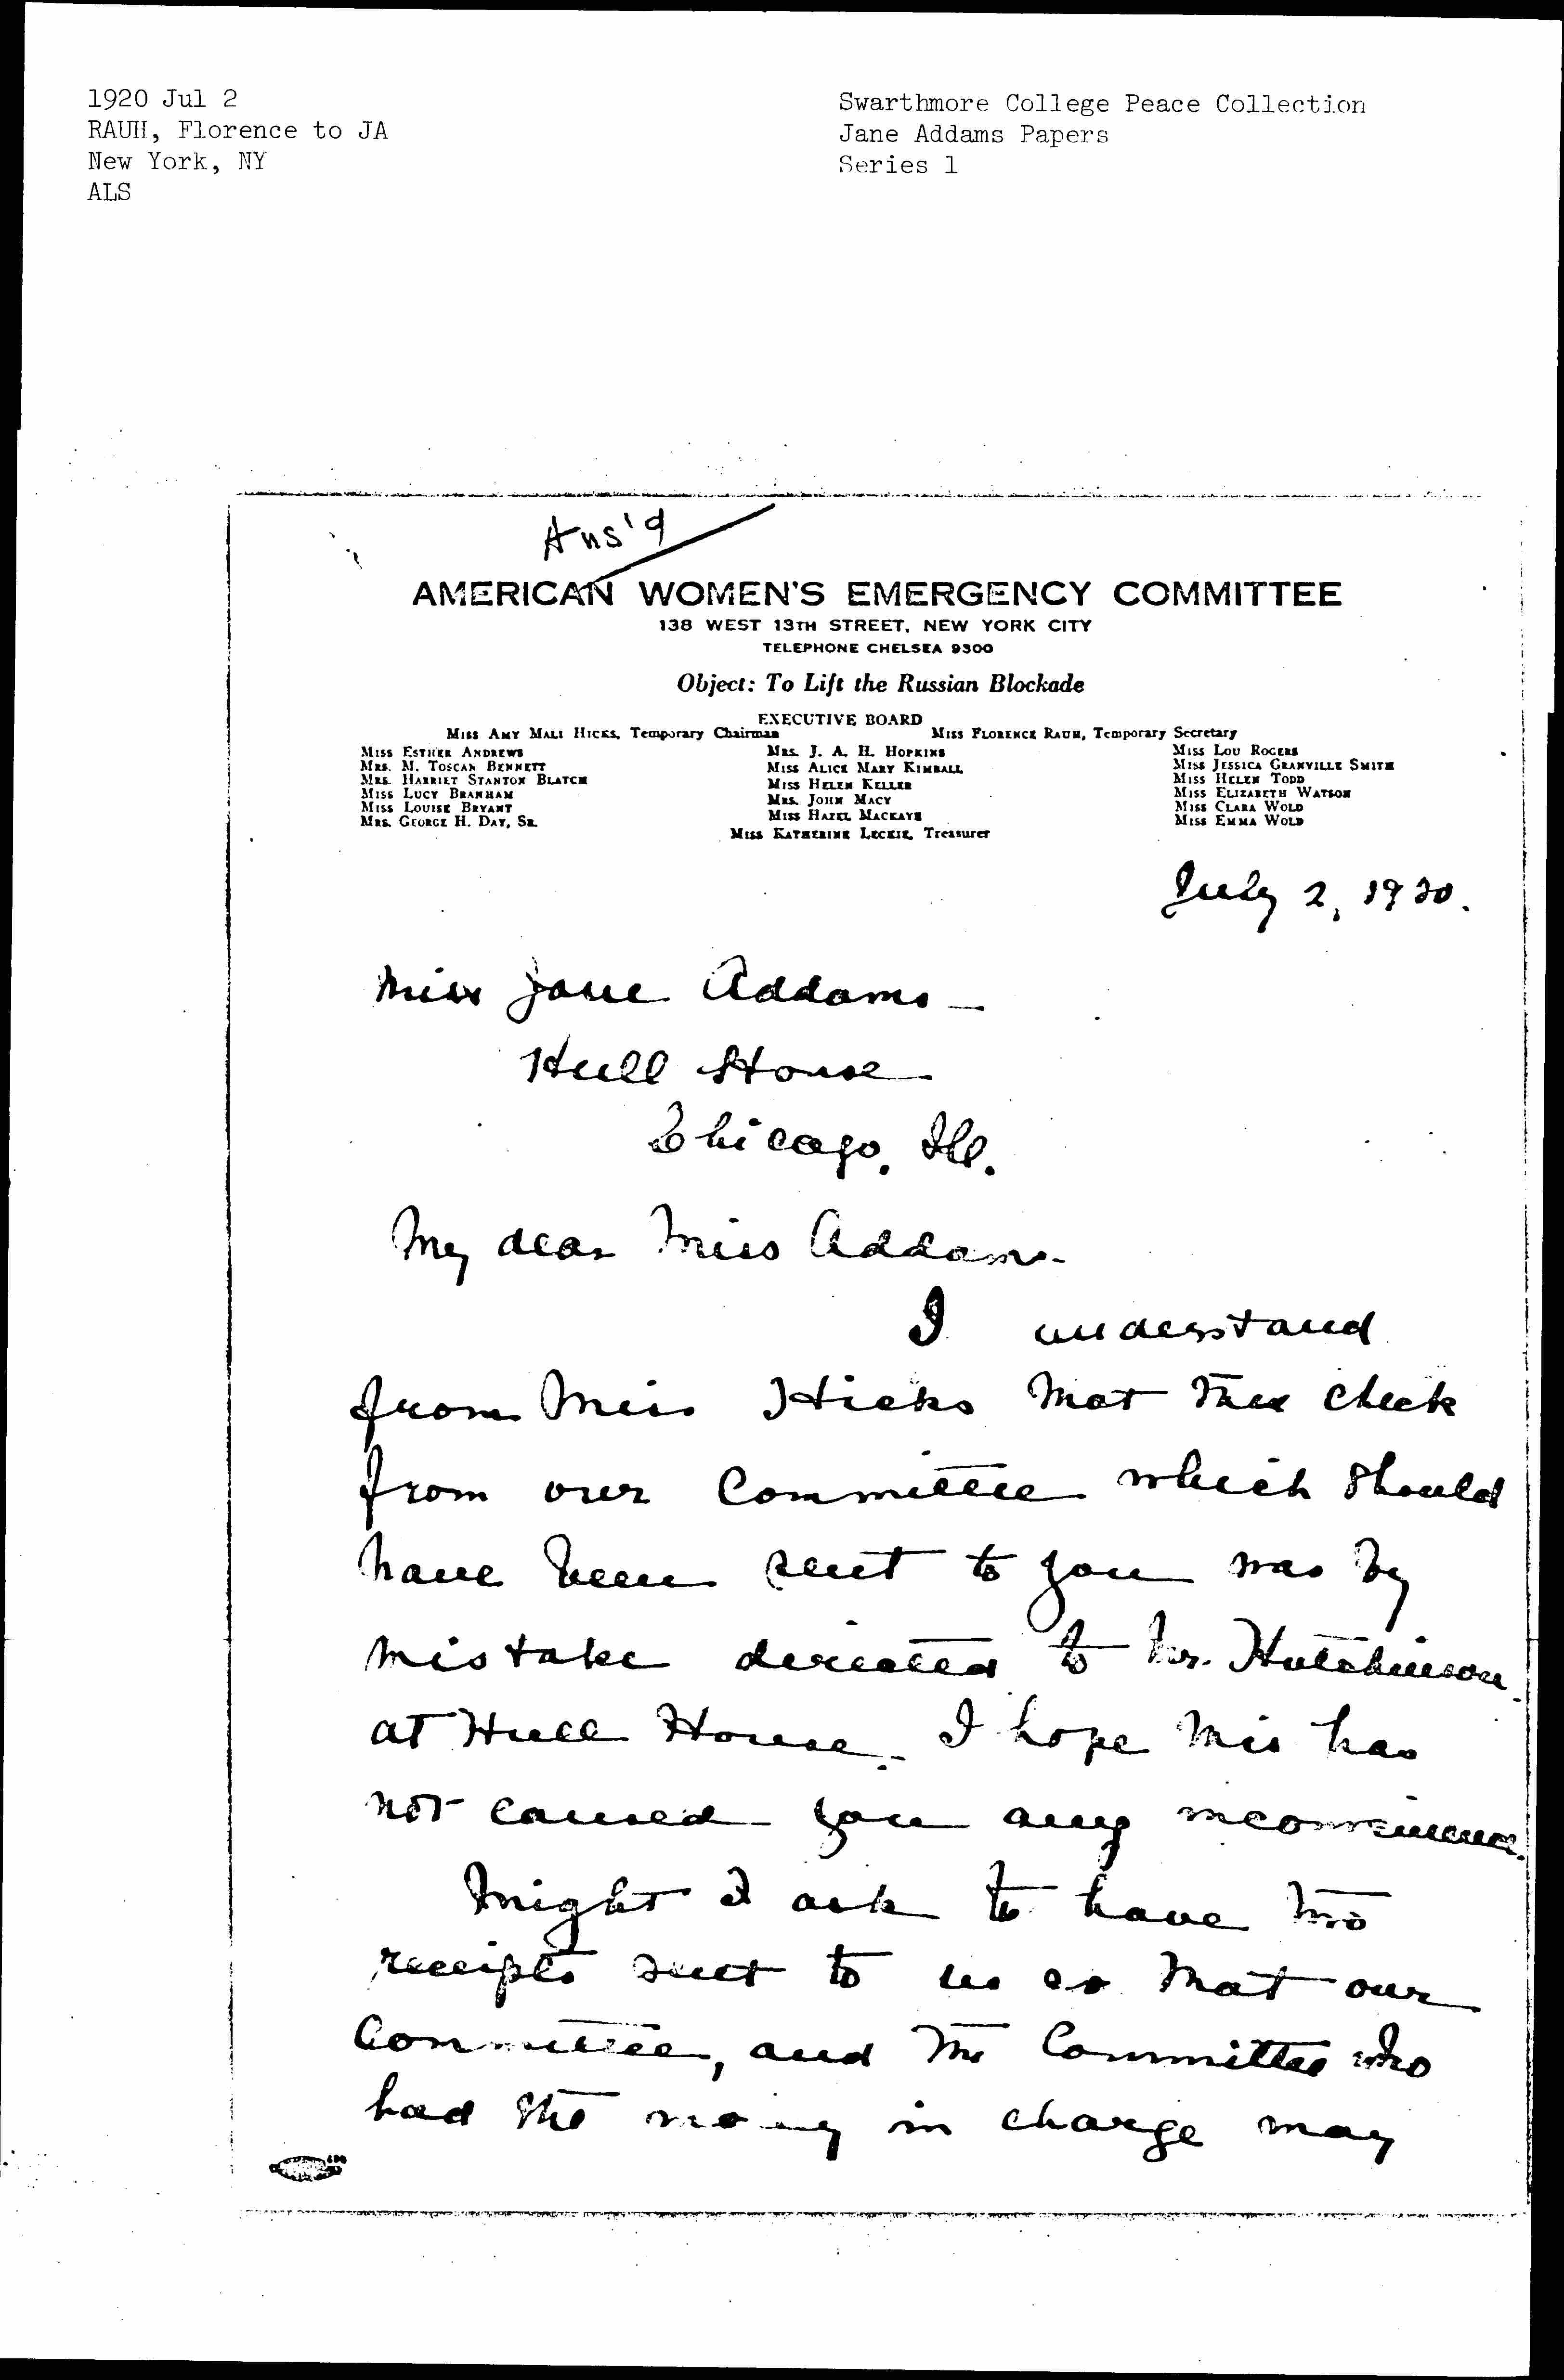 1920 Jul 2
RAUH, Florence to JA
New York, NY
ALS
Swarthmore College Peace Collection
Jane Addams Papers
Series 1
Ans'd
AMERICAN WOMEN'S EMERGENCY COMMITTEE
138 WEST 13TH STREET, NEW YORK CITY
TELEPHONE CHELSEA 9300
Object: To Lift the Russian Blockade
EXECUTIVE BOARD
MISS AMY MALI HICKS, Temporary Chairman MISS FLORENCE RAUH, Temporary Secretary
MISS ESTHER ANDREWS
MRS. M. TOSCAN BENNETT
MRS. HARRIET STANTON BLATCH
MISS LUCY BRANHAM
MISS LOUISE BRYANT
MRS. GEORGE H. DAY, SR.
MRS. J. A. H. HOPKINS
MISS ALICE MARY KIMBALL
MISS HELEN KELLER
MRS. JOHN MACY
MISS HAZEL MACKAYE
MISS LOU ROGERS
MISS JESSICA GRANVILLE SMITH
MISS HELEN TODD
MISS ELIZABETH WATSON
MISS CLARA WOLD
MISS EMMA WOLD
MISS KATHERINE LECKIE, Treasurer
July 2, 1920.
Miss Jane Addams -
Hull House
Chicago, Ill.
My dear Miss Addams -
I understand
from Miss Hicks that the check
from our Committee which should
have been sent to you was by
mistake directed to Mr. Hutchinson
at Hull House. I hope this has
not caused you any inconvenience.
Might I ask to have two
receipts sent to us so that our
Committee, and the Committee who
had the money in charge may